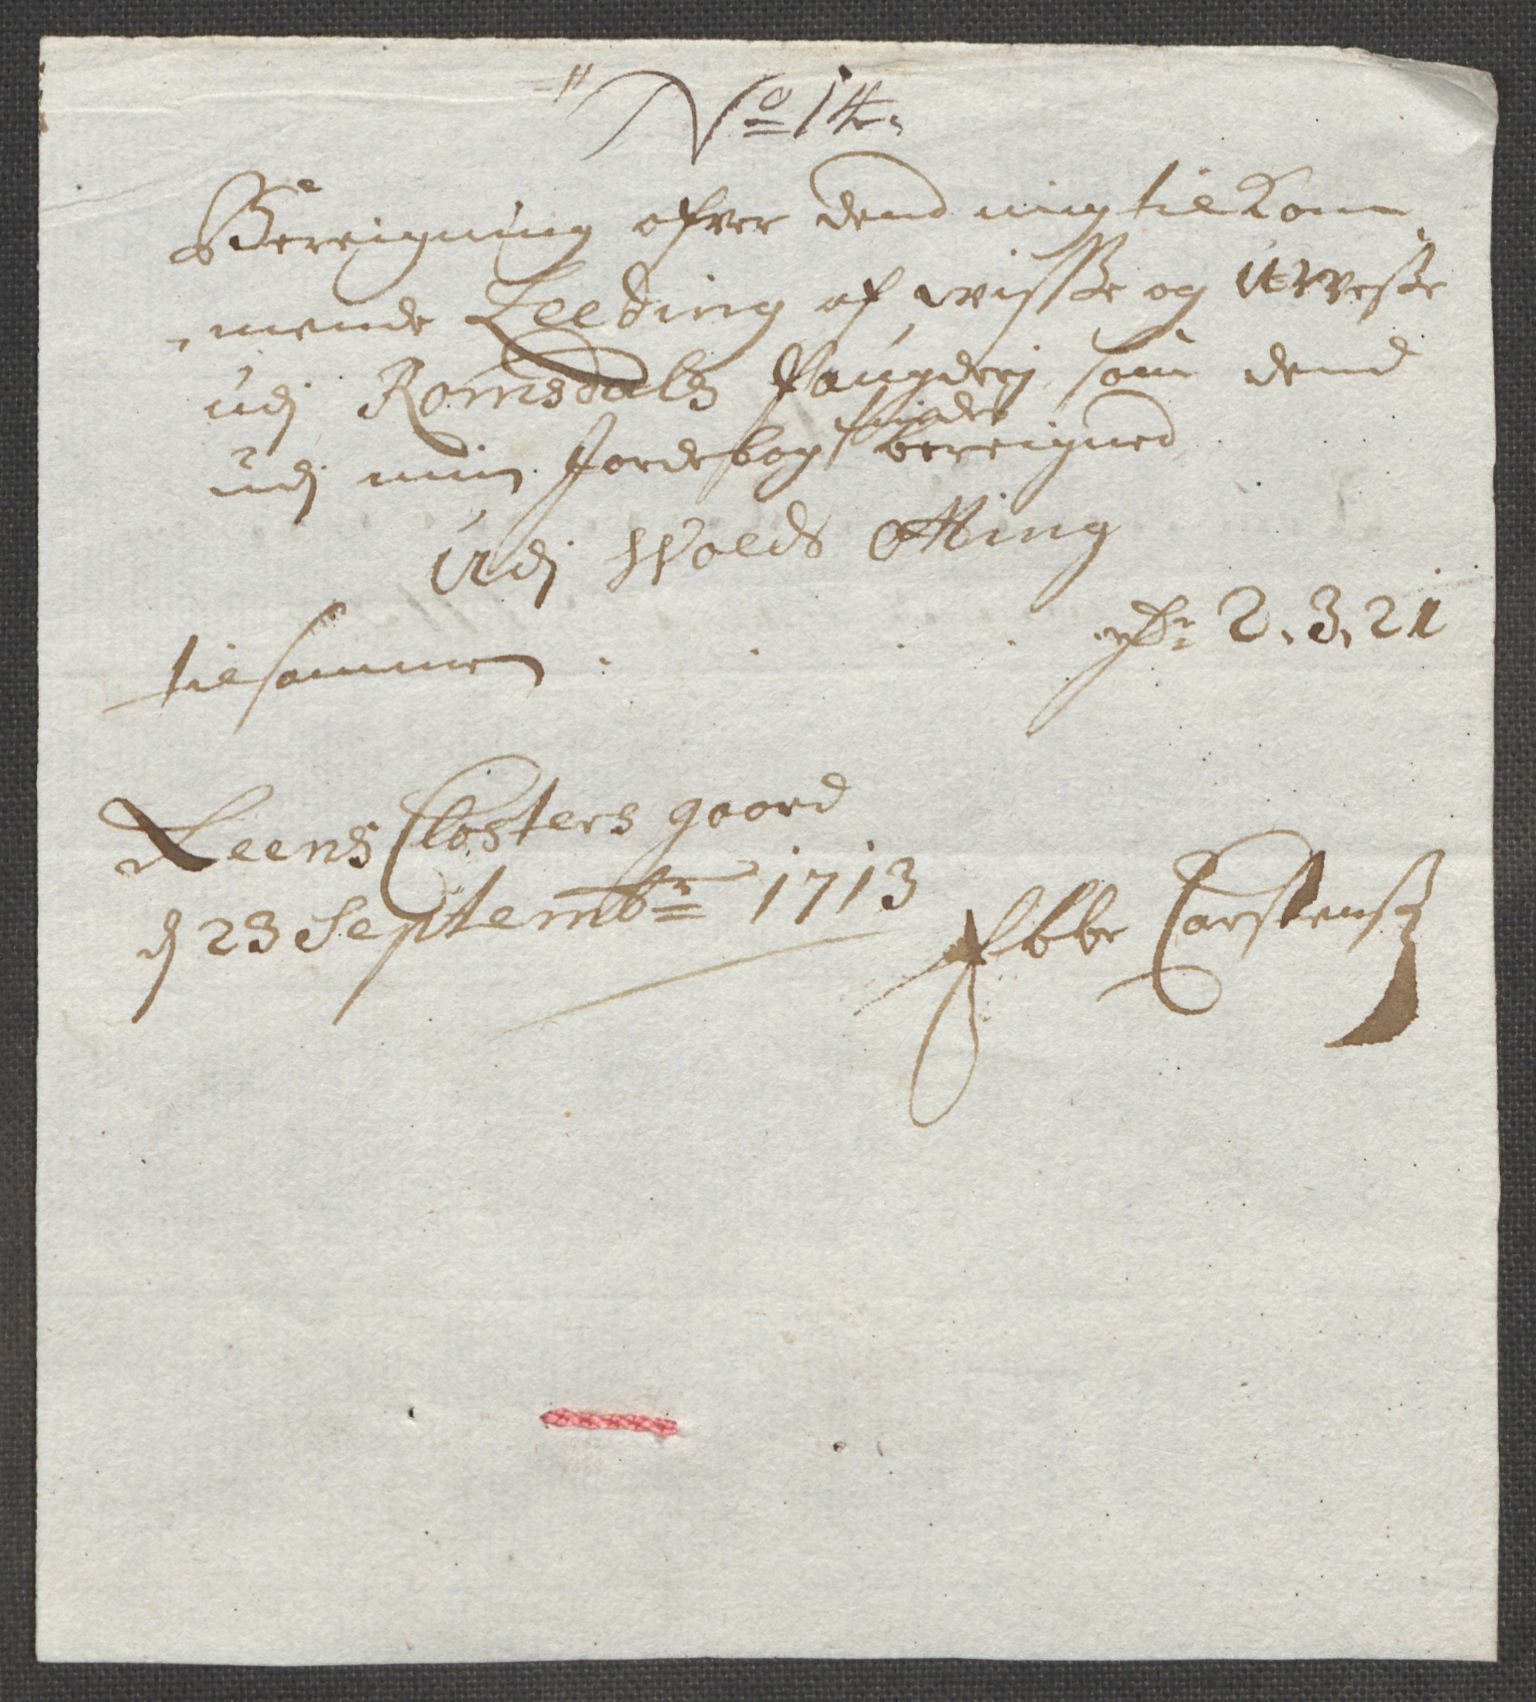 No 14.
Bereigning ofver dend mig tilkom
mende Leeding af wisse og Uwesse
udj Romsdahls fougderj, som dend
udj min Jordebog findes bereigned
Udj Wolds Otting
tilsammen . . . . 2. 3. 21
Reens Closters gaard
d 23 Septembr 1713
Ebbe Carstensz